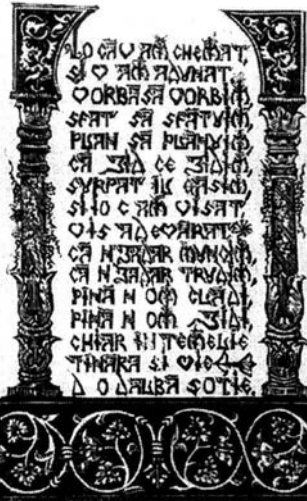 LOCAU AM CHEMAT,
SI V AM ADUNAT,
VORBA SA VORBIM,
SFAT SA SFATUIM,
PLAN SA PLANUIM,
CĂ ZID CE ZIDIM,
SURPAT IL GASIM,
SI IO C AM VISAT
VIS ADEVARAT
CĂ N ZADAR MUNCIM,
CĂ N ZADAR TRUDIM,
PINĂ N OM CLĂDI,
PINĂ N OM ZIDI,
CHIAR IN TEMELIE
TINARA SI VIE
D O DALBĂ SOTIE,